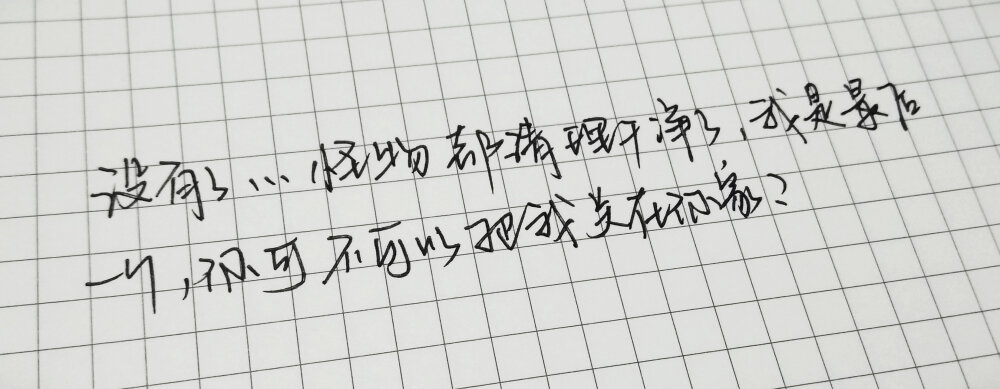 没有了…怪物都清理干净了，我是最后
一个，你可不可以把我关在你家？